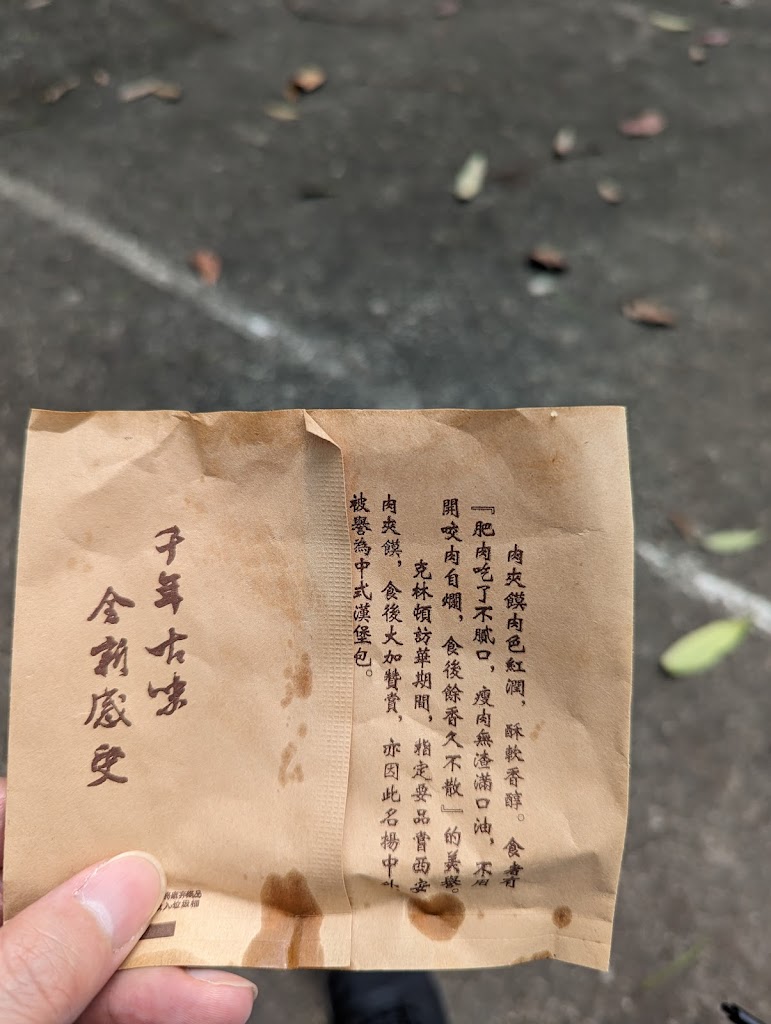 肉夾饃肉色紅潤，酥軟香醇。食
『肥肉吃了不膩口，瘦肉無渣滿口油，不
開咬肉自爛，食後餘香久不散』的美譽。
克林頓訪華期間，指定要品嘗西安
肉夾饃，食後大加贊賞，亦因此名揚中
被譽為中式漢堡包。
千年古味
全新感受